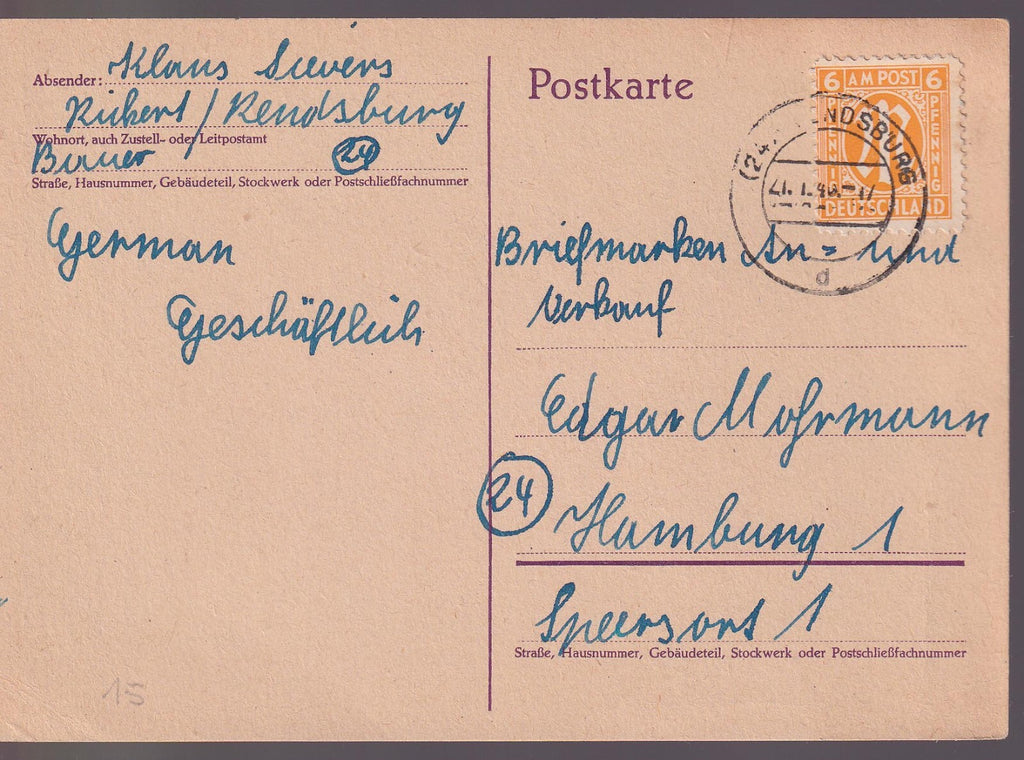 Absender: Klaus Sievers
Rickert / Rendsburg
Wohnort, auch Zustell- oder Leitpostamt
Bauer 24
Straße, Hausnummer, Gebäudeteil, Stockwerk oder Postschließfachnummer
German
Geschäftlich
15
Postkarte
6 AM POST 6
PFENNIG
PFENNIG
DEUTSCHLAND
(24 ENDSBURG
d
Briefmarken An= und
Verkauf
Edgar Mohrmann
24
Hamburg 1
Speersort 1
Straße, Hausnummer, Gebäudeteil, Stockwerk oder Postschließfachnummer